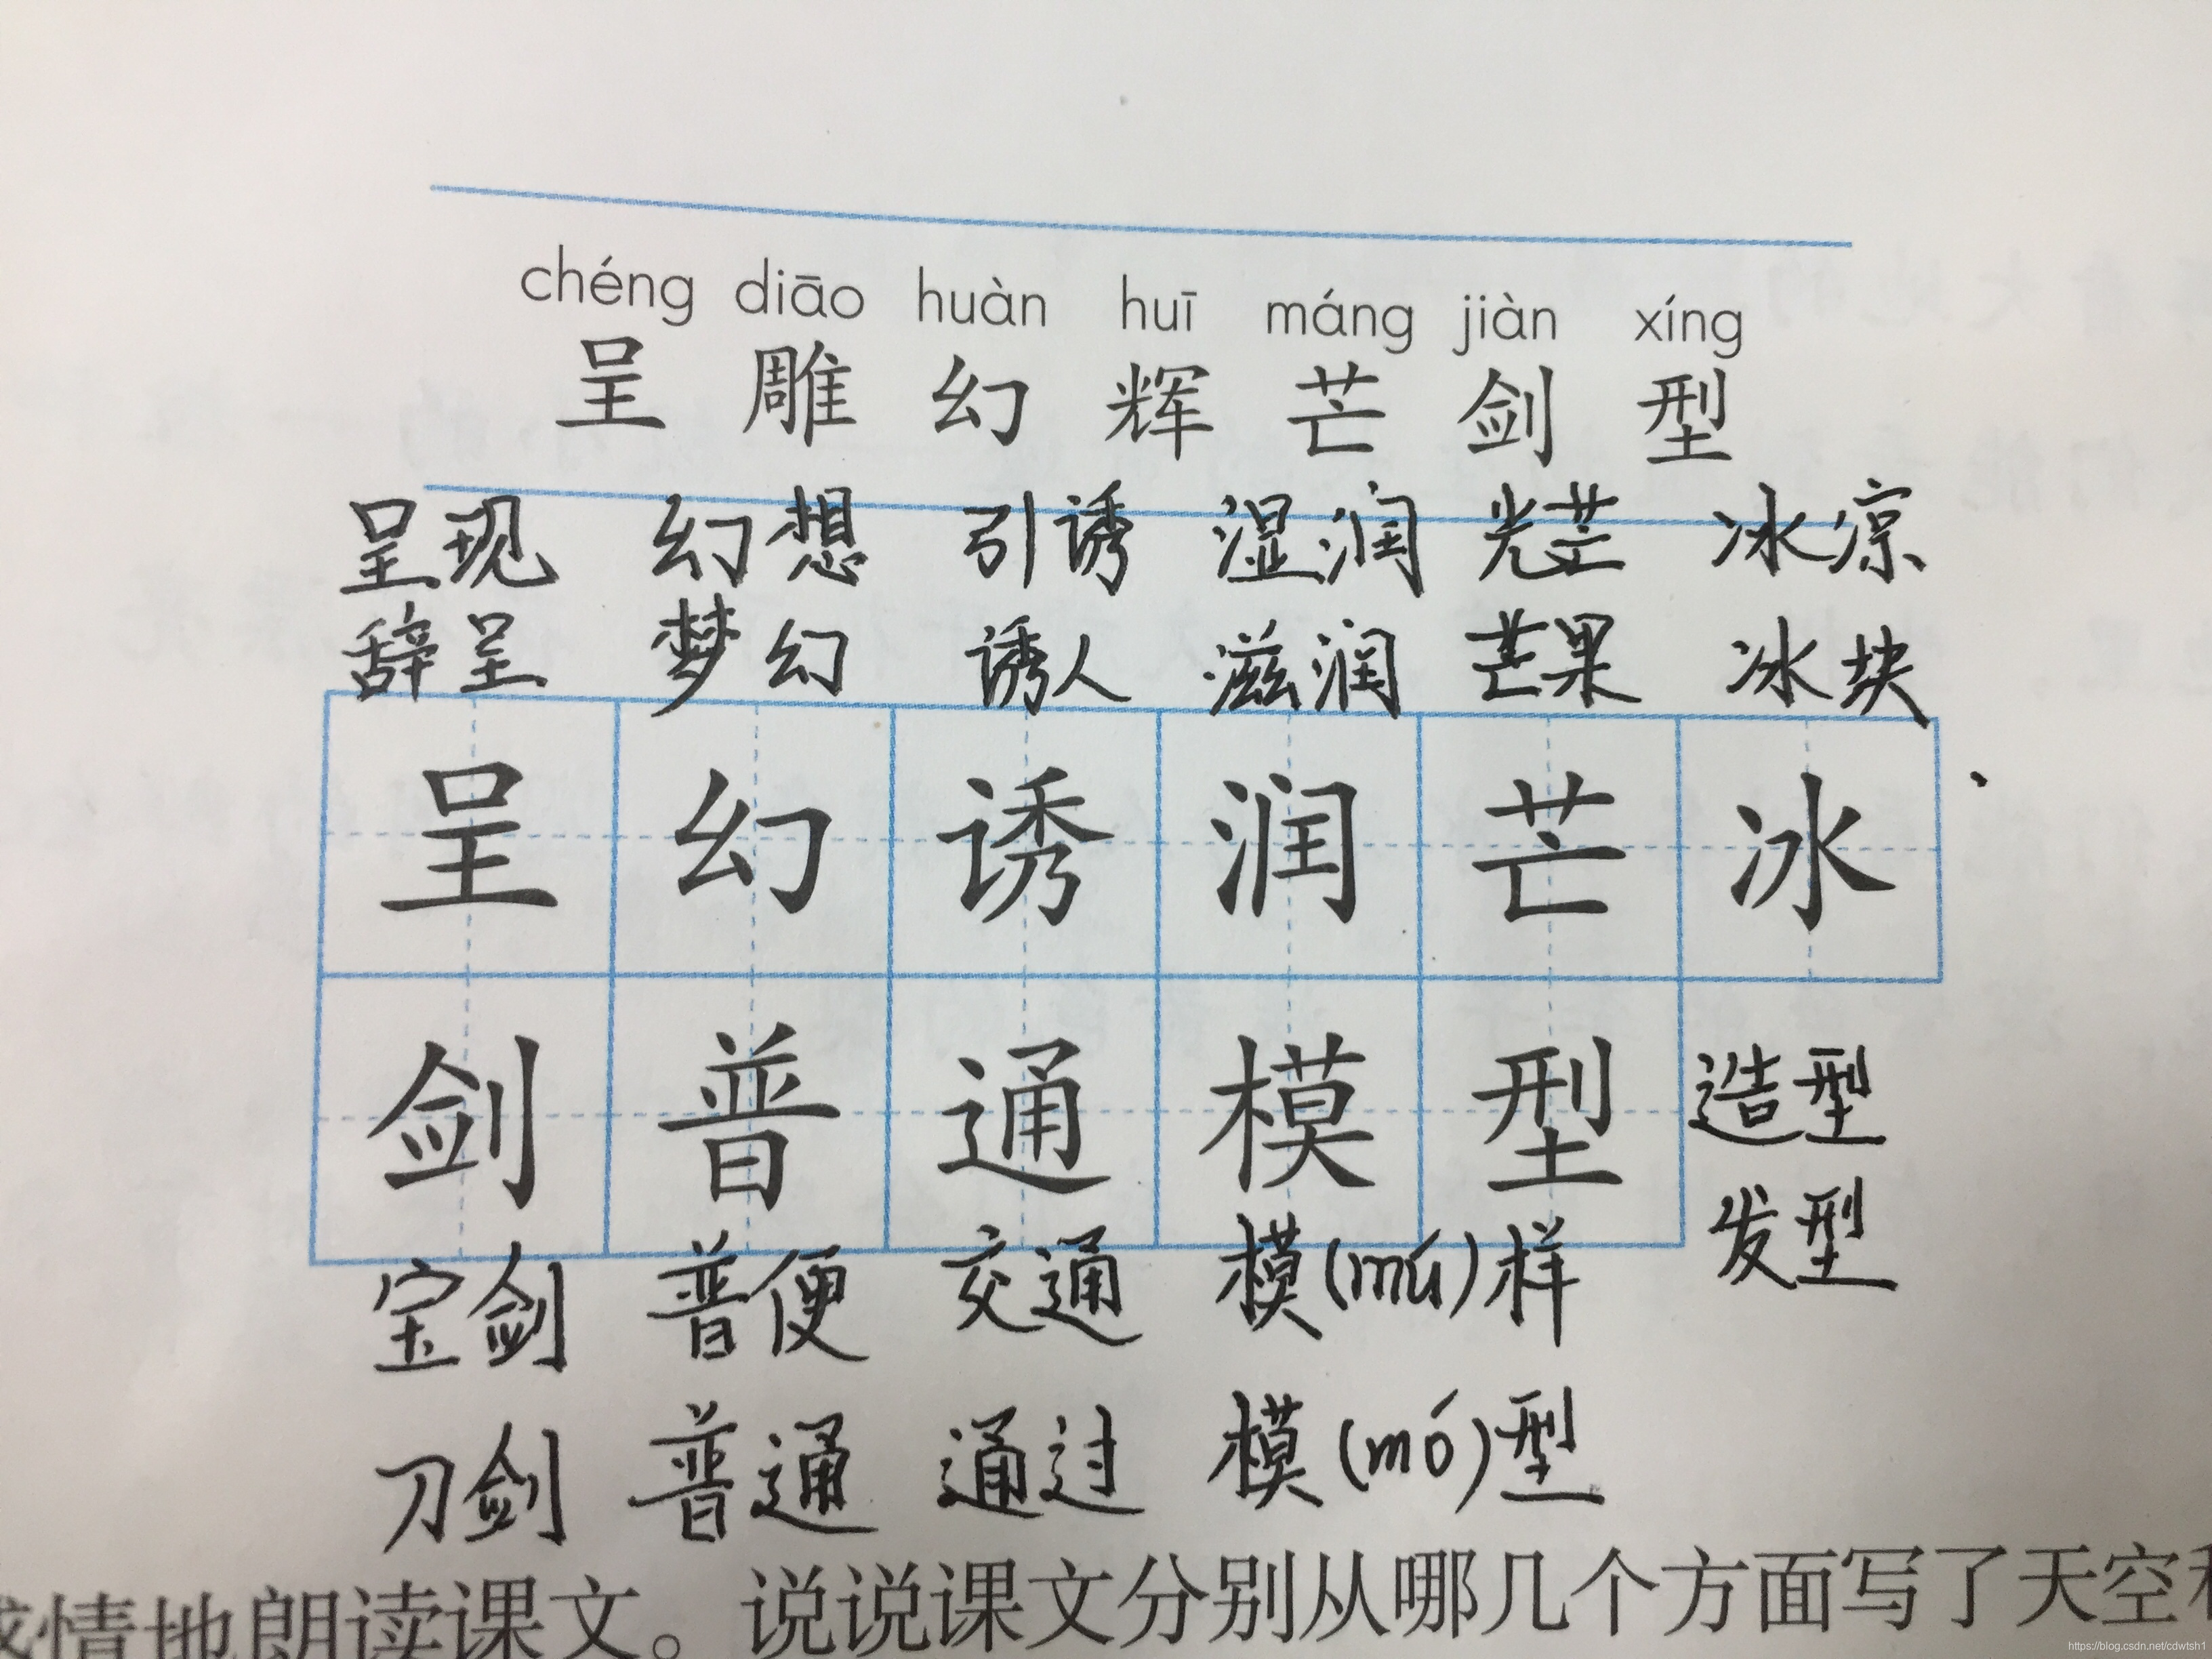 chéng diāo huàn huī máng jiàn xíng
呈 雕 幻 辉 芒 剑 型
呈现 幻想 引诱 湿润 光芒 冰凉
辞呈 梦幻 诱人 滋润 芒果 冰块
呈 幻 诱 润 芒 冰
剑 普 通 模 型 造型
发型
宝剑 普便 交通 模(mú)样
刀剑 普通 通过 模(mó)型
感情地朗读课文。说说课文分别从哪几个方面写了天空和
https://blog.csdn.net/cdwtsh1